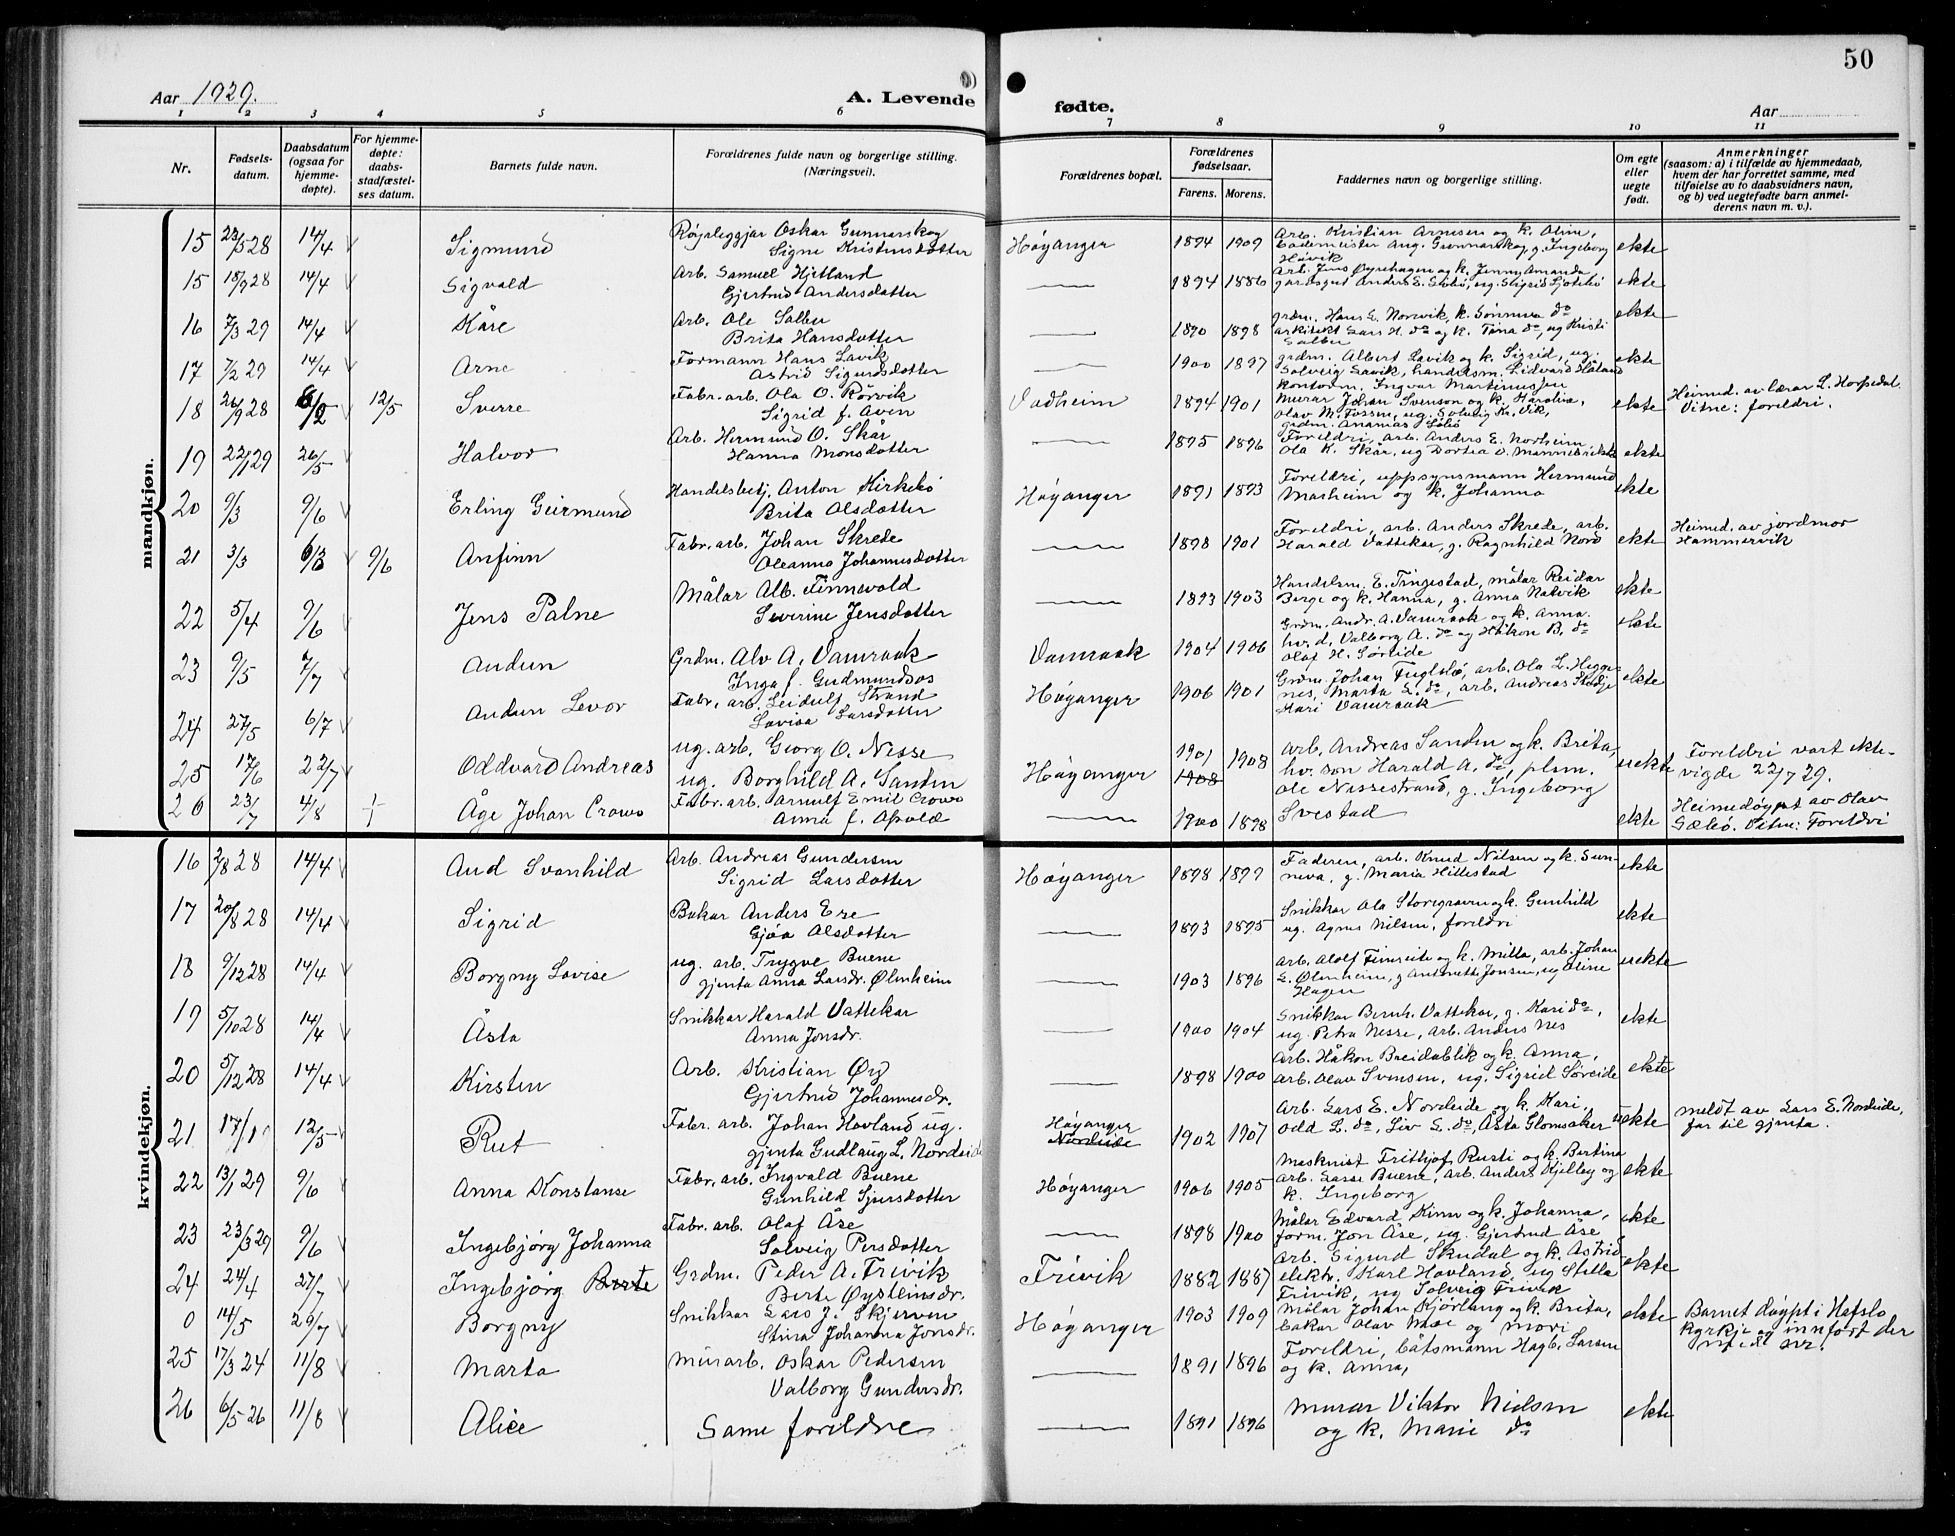 50
Aar 1929.
A. Levende
fødte.
Aar
1 2 3 4 5 6
7 8 9 10 11
Nr.
Fødsels-
datum.
Daabsdatum
(ogsaa for
hjemme-
døpte).
For hjemme-
døpte:
daabs-
stadfæstel-
ses datum.
Barnets fulde navn.
Forældrenes fulde navn og borgerlige stilling.
(Næringsvei).
Forældrenes bopæl.
Forældrenes
fødselsaar.
Farens. Morens.
Faddernes navn og borgerlige stilling.
Om egte
eller
uegte
født.
Anmerkninger
(saasom: a) i tilfælde av hjemmedaab,
hvem der har forrettet samme, med
tilføielse av to daabsvidners navn,
og b) ved uegtefødte barn anmel-
derens navn m. v.).
mandkjøn.
15 23/5 28 14/4 Sigmund Røyrleggjar Oskar Gunnarskog
Signe Kristensdotter
Høyanger 1894 1909 Arb. Kristian Arnesen og k. Oline,
Bademeister Aug. Gunnarskog, g. Ingeborg
Høivik
ekte
15 18/9 28 14/4 Sigvald Arb. Samuel Hjetland
Gjertrud Andersdotter
1894 1886 Arb. Jens Øyrehagen og k. Jenny Amanda
gardsgut Anders E. , ug. Sigrid
ekte
16 7/3 29 14/4 Kåre Arb. Ole Salbu
Brita Hansdotter
1890 1898 grdm. Hans E. Norevik, k. Sønneva do
arkitekt Lars H. do og k. Tina do, ug Kristi
Salbu
ekte
17 7/2 29 14/4 Arne Formann Hans Lavik
Astrid Sigurdsdotter
1900 1897 grdm. Albert Lavik og k. Sigrid, ug.
Solveig Lavik, handelsm. Lidvard Håland
kontorm. Ingvar Martinussen
ekte
18 26/9 28 12/5 Sverre Fabr. arb. Ola O. Rørvik
Sigrid f. Aven
Vadheim 1894 1901 Murar Johan Svenson og k. Karolina,
Olav M. Fossen, ug. Solveig Kr. Vik,
grdm. Ananias
ekte Heimed. av lærar L. Horpedal.
Vitne: foreldri.
19 22/1 29 26/5 Halvor Arb. Hermund O. Skår
Hanna Monsdotter
1895 1896 Foreldri, arb. Anders E. Norheim,
Ola K. Skår, ug Dortea O.
ekte
20 9/3 9/6 Erling Geirmund Handelsbetj. Anton Kirkebø
Brita Olsdotter
Høyanger 1891 1893 Foreldri, uppsynsmann Hermund
Masheim og k. Johanna
ekte
21 3/3 9/6 Anfinn Fabr. arb. Johan Skrede
Oleanna Johannesdotter
1898 1901 Foreldri, arb. Anders Skrede, arb.
Harald Vattekar, g. Ragnhild Nord
ekte Heimed. av jordmor
Hammervik
22 5/4 9/6 Jens Palne Målar Alb. Finnevold
Severine Jensdotter
1893 1903 Handelsm. E. Tingestad, målar Reidar
Berge og k. Hanna, g. Anna Nakvik
ekte
23 9/5 7/7 Audun Grdm. Alv A. Vamraak
Inga f. Gudmundsos
Vamraak 1904 1906 Grdm. Andr. A. Vamraak og k. Anna
hv. d. Valborg A. do og Håkon B. do
Olaf H. Søreide
ekte
24 27/5 6/7 Audun Levor Fabr. arb. Leidulf Strand
Lovisa Larsdotter
Høyanger 1906 1901 Grdm. Johan Fuglebø, arb. Ola L. Hegge
nes, Marta L. do, arb. Andreas
Kari Vamraak
ekte
25 17/6 22/7 Oddvard Andreas ug. arb. Georg O. Nesse
ug. Borghild A. Sanden
Høyanger 1901 1908 1908 Arb. Andreas Sanden og k. Brita,
hv. son Harald A. do, plsm.
Ole Nessestrand, g. Ingeborg
Svestad
uekte Foreldri vart ekte-
vigde 22/7 29.
26 23/7 4/8 Åge Johan Crowo Fabr. arb. Arnulf Emil Crowo
Anna f. Opvold
1900 1898 ekte Heimedøypt av Olav
Vitne: Foreldri
kvindekjøn.
16 2/8 28 14/4 Aud Svanhild Arb. Andreas Gundersen
Sigrid Larsdotter
Høyanger 1898 1899 Faderen, arb. Knud Nilsen og k. Sun-
neva, g. Maria Hillestad
ekte
17 20/8 28 14/4 Sigrid Bakar Anders Eze
Gjøa Olsdotter
1893 1895 Snikkar Ola Storegraven og k. Gunhild
ug. Agnes Nilsen, foreldri
ekte
18 9/12 28 14/4 Borgny Lovise ug. arb. Trygve Buene
gjenta Anna Larsdr. Ølmheim
1903 1896 arb. Adolf Finnseite og k. Milla, arb. Johan
L. Ølmheim, g Antonette Jonsen, ug Oline
Hagen
uekte
19 5/10 28 14/4 Åsta Snikkar Harald Vattekar
Anna Jonsdr.
1900 1904 Snikkar Bernh. Vattekar, g. Kari do,
ug. Petra Nesse, arb. Anders Nes
ekte
20 5/12 28 14/4 Kirsten Arb. Kristian Øy
Gjertrud Johannesdr.
1898 1900 Arb. Håkon Breidablik og k. Anna,
arb. Olav Svensen, ug. Sigrid Søreide
ekte
21 17/1 12/5 Rut Fabr. arb. Johan Hovland ug.
gjenta Gudlaug L. Nordeide
Høyanger
Nordeide
1902 1907 Arb. Lars E. Nordeide og k. Kari,
Odd L. do, Liv L. do, Åsta Glomsaker
uekte Meldt av Lars E. Nordeide,
far til gjenta.
22 13/1 29 9/6 Anna Konstanse Fabr. arb. Ingvald Buene
Gunhild Sjursdotter
Høyanger 1906 1905 Maskinist Frithjof Rusti og k. Bertina
Arb. Lasse Buene, arb. Anders Kjelley og
k. Ingeborg
ekte
23 23/3 29 9/6 Ingebjørg Johanna Fabr. arb. Olaf Åse
Solveig Persdotter
1898 1900 Målar Edvard Kinn og k. Johanna,
form. Jon Åse, ug. Gjertrud Åse
ekte
24 24/4 27/7 Ingebjørg Berte Grdm. Peder A. Frivik
Berte Øysteinsdr.
Frivik 1882 1887 Arb. Sigurd Skudal og k. Astrid
elektr. Karl Hovland, ug Stella
Frivik, ug Solveig Frivik
ekte
0 14/5 29/7 Borgny Snikkar Lars J. Skjerven
Stina Johanna Jonsdr.
Høyanger 1903 1909 Målar Johan Kjørlaug og k. Brita,
bakar Olav Moe og mori
ekte Barnet døypt i Hafslo
kyrkje og innført der
25 17/3 24 11/8 Marta Murarb. Oskar Pedersen
Valborg Gundersdr.
1891 1896 Foreldri, båtsmann Hagb. Larsen
og k. Anna,
26 6/5 26 11/8 Alice Same foreldre
1891 1896 Murar Viktor Nielsen
og k. Marie do
ekte